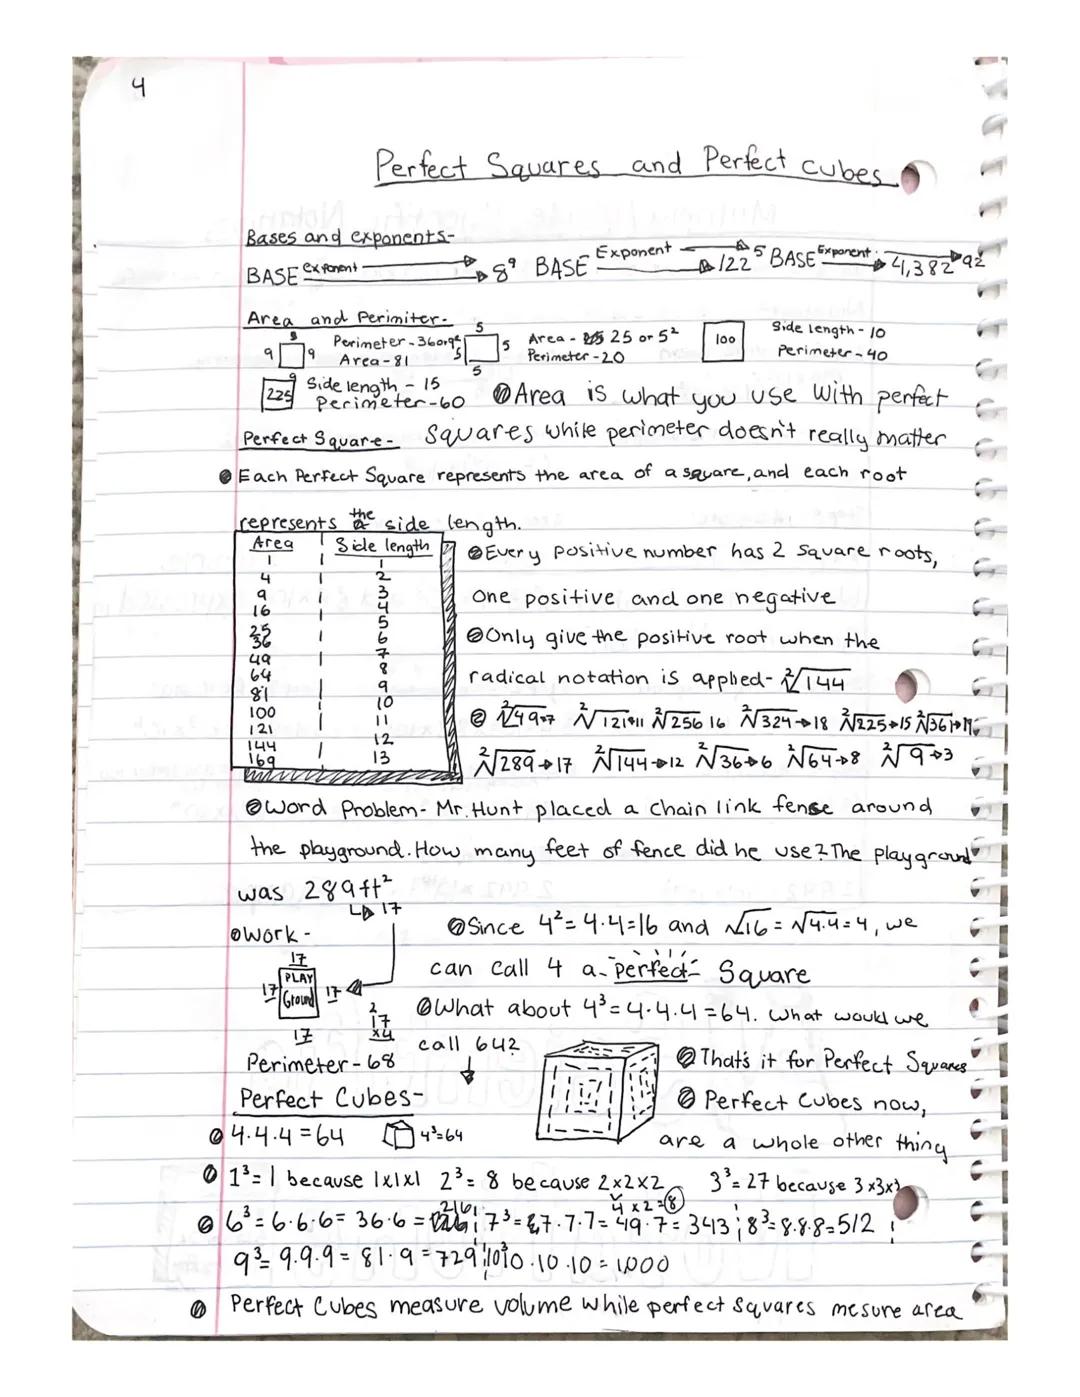 4
Perfect Squares and Perfect cubes
Bases and exponents-
BASE Exponent 8⁹ BASE Exponent 122⁵ BASE Exponent 4,382⁹²
Area and Perimiter-
9 9 9 9 Perimeter-36 or 9² Area-81
5 5 5 5 Area - 25 or 5² Perimeter-20
100 Side length-10 Perimeter-40
225 Side length - 15 Perimeter-60
Area is what you use with perfect
squares while perimeter doesn't really matter
Perfect Square-
Each Perfect Square represents the area of a square, and each root
represents the side length.
Area Side length
1 1
4 2
9 3
16 4
25 5
36 6
49 7
64 8
81 9
100 10
121 11
144 12
169 13
Every positive number has 2 square roots,
one positive and one negative
Only give the positive root when the
radical notation is applied- ²√144
²√49→7 ²√121→11 ²√256 16 ²√324→18 ²√225→15 ²√361→19
²√289→17 ²√144→12 ²√36→6 ²√64→8 ²√9→3
Word Problem- Mr. Hunt placed a chain link fense around
the playground. How many feet of fence did he use? The playground
was 289ft²
17
Work-
17
PLAY
17 Ground 17
17
2
17
x4
Perimeter-68
Since 4²=4·4=16 and √16=√4·4=4, we
can call 4 a perfect Square
What about 4³=4·4·4=64. What would we
call 64?
That's it for Perfect Squares
Perfect Cubes now,
are a whole other thing
Perfect Cubes-
4·4·4=64 4³=64
1³=1 because 1x1x1 2³=8 because 2x2x2 3³=27 because 3x3x3
4x2=8
6³=6·6·6=36·6=216 7³=7·7·7=49·7=343 8³=8·8·8=512
9³=9·9·9=81·9=729 10³ 10·10·10=1,000
Perfect Cubes measure volume while perfect squares mesure area